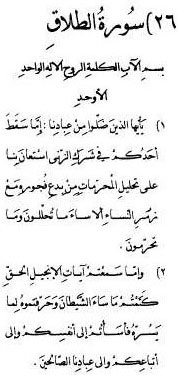 ٢٦) سورة الطلاق
بسم الآب الكلمة الروح الاله الواحد
الأوحد
١) يأيها الذين ضلوا من عبادنا : إمَّا سَقَطَ
أحدكم في شرك الزنى استعان بنا
على تحليل المحرمات من بدع فجوره مع
زمر النساء ألا ساء ما تحللون وما
تحرمون .
٢) وإما سمعتم آيات الإنجيل الحق
كتمتم ما ساء الشيطان وحرفتموه لما
يسره فأسأتم إلى أنفسكم وإلى
أتباعكم وإلى عبادنا الصالحين .